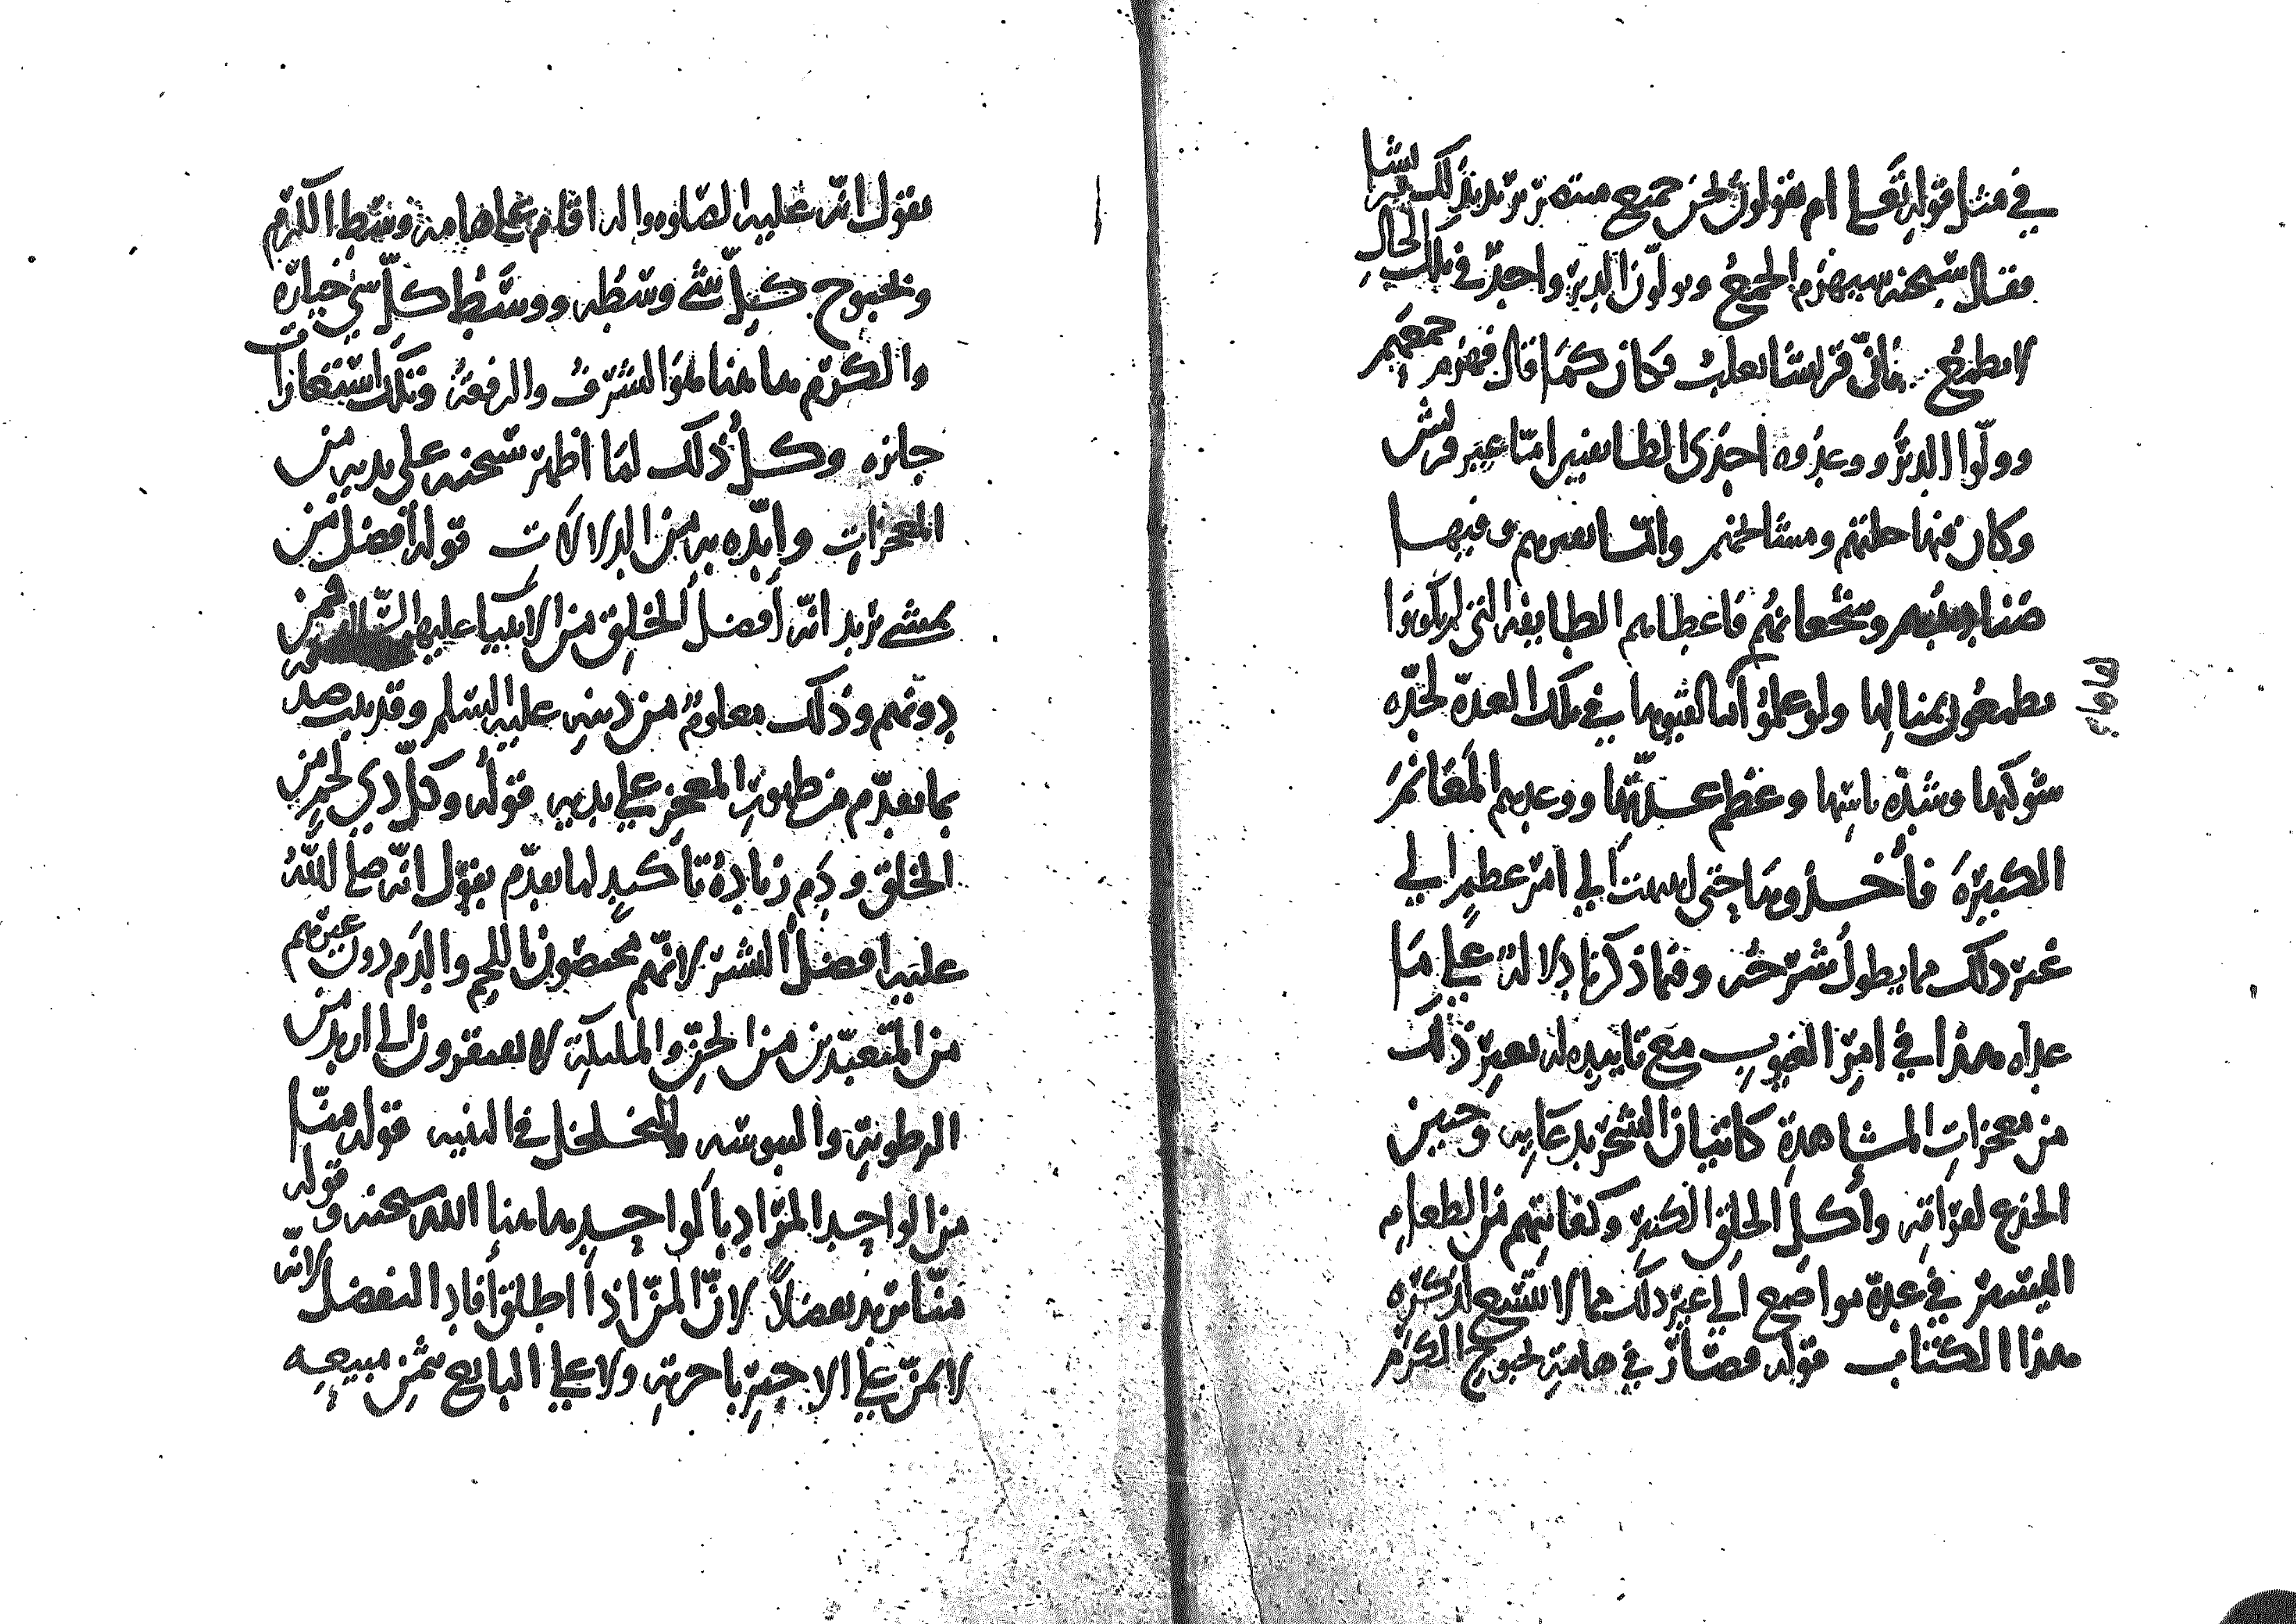 في مثل قوله تعالى ام يقولون نحن جميع منتصر يريد بذلك قريشا
فقال سبحنه سيهزم الجمع ويولون الدبر واحد في تلك الحال
لا يطمع بأن قريشا تغلب فكان كما قال فهزم جمعهم
وولوا الدبر ووعدوه احدى الطايفتين اما عير قريش
وكان فيها جلتهم ومشائخهم واما نفيرهم وفيها
صناديدهم وشجعانهم فاعطاهم الطايفة التي لم يكونوا
يطمعون بمنالها ولو علموا في تلك العدة لحده
شوكتها وشدة باسها وعظم عدتها ووعدهم المغانم
الكبيرة فأخذوها حتى الى امر عظيم الى
غير ذلك مما يطول شرحه وفيما ذكرنا دلالة على ما
عداه هذا في امر الغيوب مع تاييده له بغير ذلك
من معجزات المشاهدة كاتيان الشجر بدعايه وحنين
الجذع لفراقه وأكل الخلق الكثير وكفايتهم من الطعام
اليسير في عدة مواضع الى غير ذلك مما لا يتسع لذكره
هذا الكتاب قوله فصار في هامة بحبوح الكرم
يقول انه عليه الصلوه واله اقام على هامة وسط الكرم
وبحبوح كل شي وسطه ووسط كل شي خياره
والكرم هاهنا هو الشرف والرفعة وتلك استعارات
جائزه وكل ذلك لما اظهر سبحنه على يديه من
المعجزات وايده به من الدلالات قوله أفضل من
يمشي يريد انه أفضل الخلق من الانبيا عليهم السلام فمن
دونهم وذلك معلوم من دينه عليه السلم وقد ثبت صدقه
بما تقدم من ظهور المعجز على يديه قوله وكل ذي لحم من
الخلق ودم زيادة تأكيد لما تقدم يقول انه صلى الله
عليه افضل البشر لانهم مخصوصون باللحم والدم دون غيرهم
من المتعبدين من الجن والمليكة لا يفتقرون الى ازيد من
الرطوبة واليبوسة والتخلخل في البنيه قوله منا
من الواحد المراد بالواحد هاهنا الله سبحنه وقوله
منا يريد تفضلا لان المن اذا اطلق أفاد التفضل لانه
لا يمن على الاجير باجرته ولا على البايع بثمن مبيعه